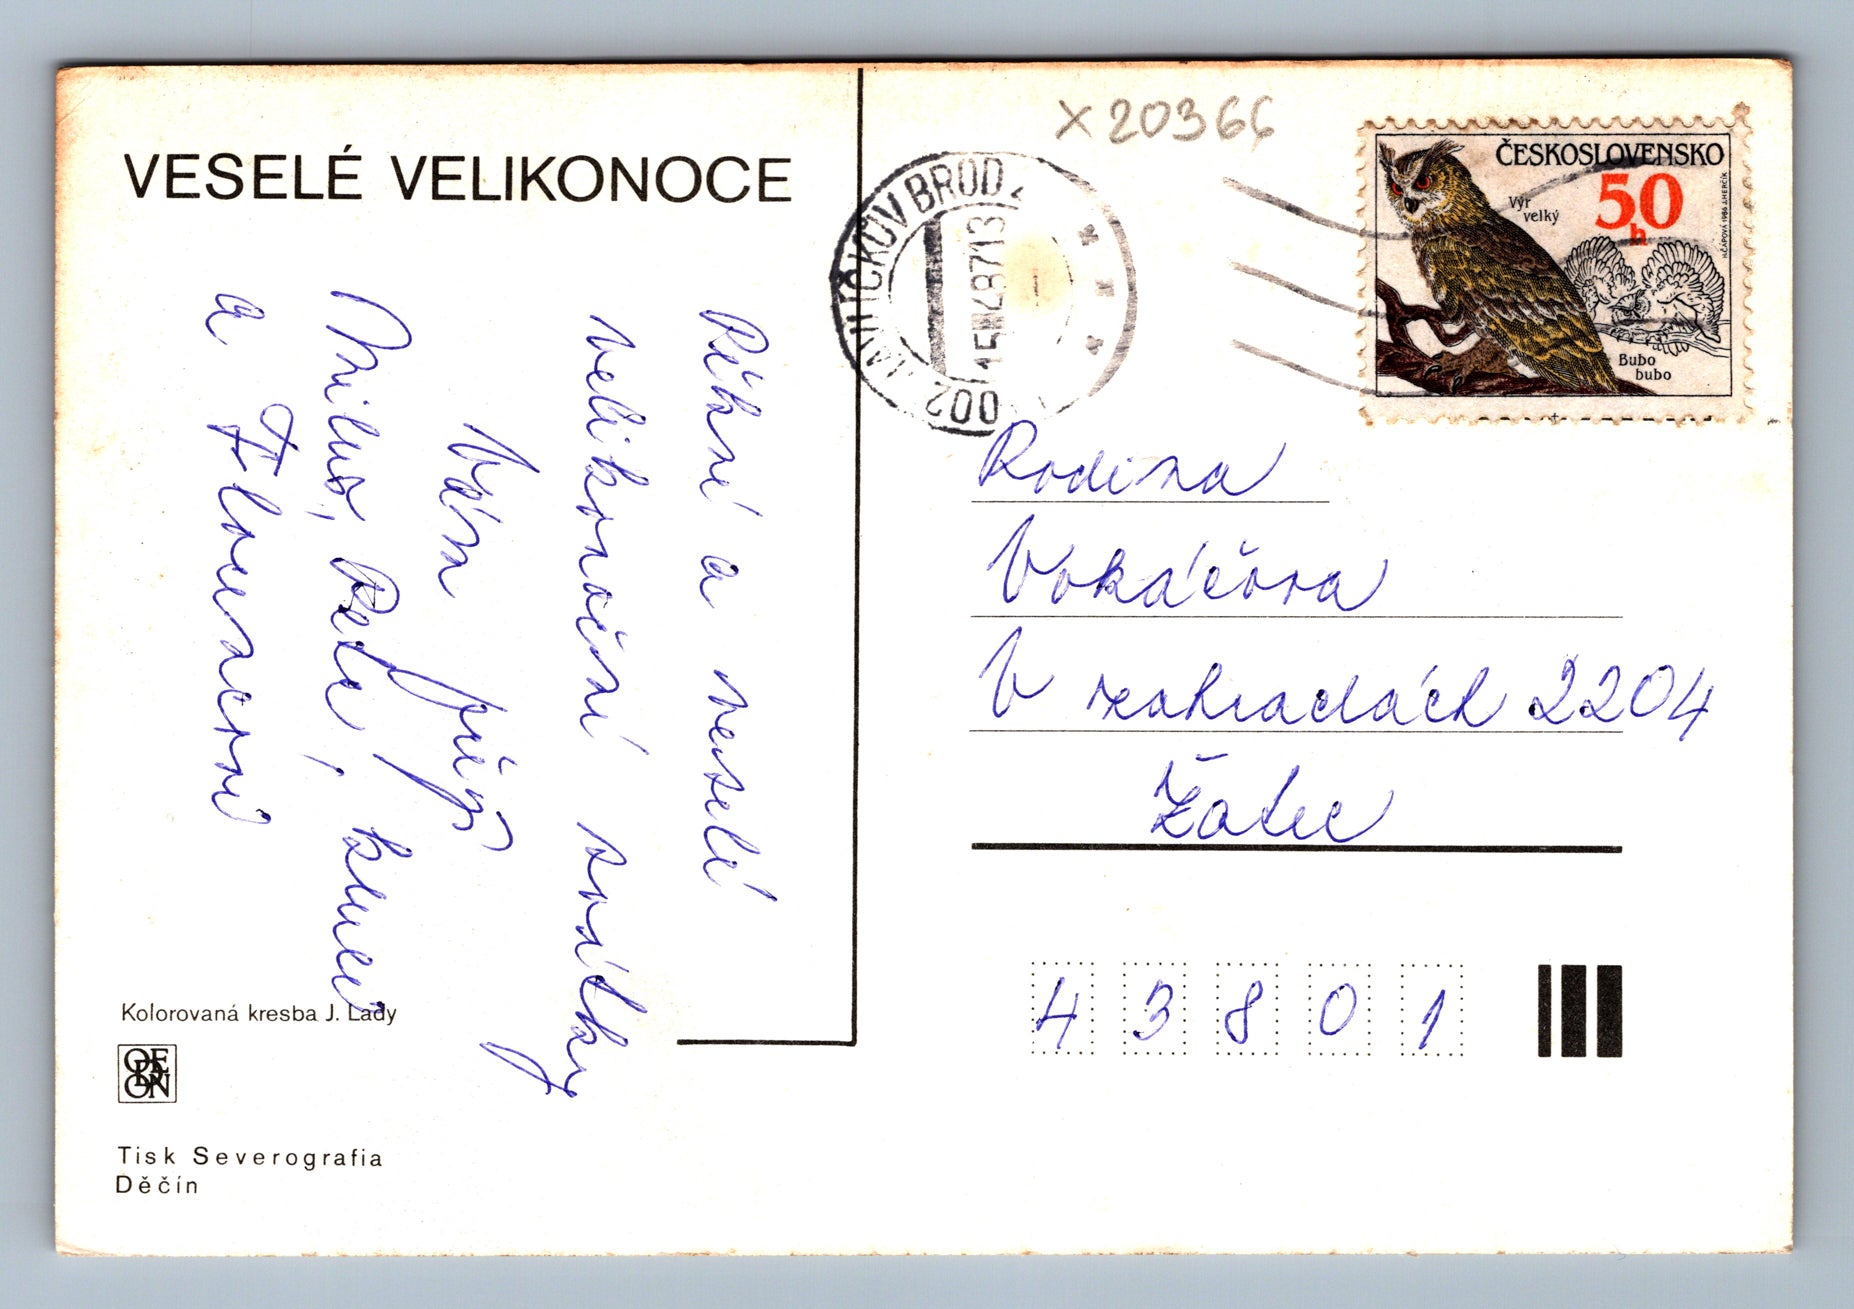 VESELÉ VELIKONOCE
Pěkné a veselé
velikonoční svátky
Vám přejí
Miluš, Petr, kluci
a Flouskovi
Kolorovaná kresba J. Lady
ODEON
Tisk Severografia
Děčín
x 20366
HAVLÍČKŮV BROD 2
15.-4.87 13
002
ČESKOSLOVENSKO
50
h
Výr
velký
Bubo
bubo
Rodina
Vokáčova
V zahradách 2204
Žatec
43801